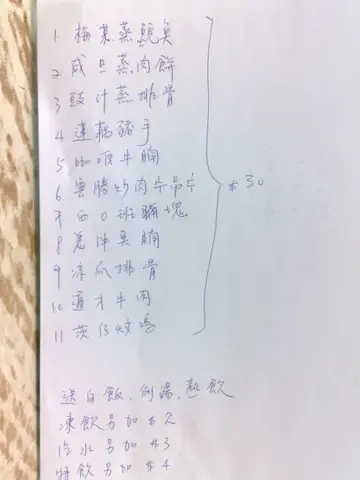 1. 梅菜蒸鯇魚
2 咸旦蒸肉餅
3 豉汁蒸排骨
4 蓮藕豬手
5 咖喱牛腩
6 炒肉片吊片
7 西 班腩塊
8 魚腩
9 凉瓜排骨
10 通才牛肉
11 茨仔炆鸡
$30
送白飯、例湯、热飲
凍飲另加$2
汽水另加$3
特飲另加$4